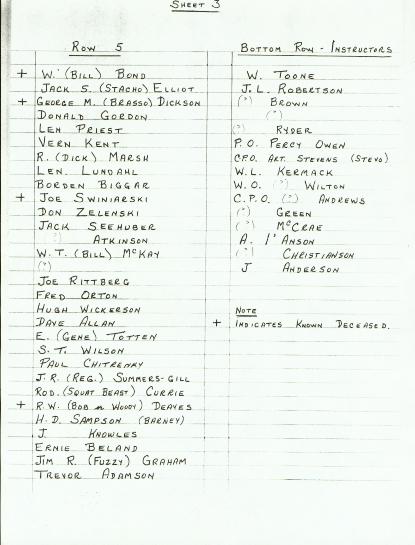 SHEET 3
ROW 5
+ W. (BILL) BOND
JACK S. (STACHO) ELLIOT
+ GEORGE M. (BRASSO) DICKSON
DONALD GORDON
LEN PRIEST
VERN KENT
R. (DICK) MARSH
LEN. LUNDAHL
BORDEN BIGGAR
+ JOE SWINIARSKI
DON ZELENSKI
JACK SEEHUBER
ATKINSON
W. T. (BILL) McKAY
(?)
JOE RITTBERG
FRED ORTON
HUGH WICKERSON
DAVE ALLAN
E. (GENE) TOTTEN
S. T. WILSON
PAUL CHITRENKY
J. R. (REG.) SUMMERS-GILL
ROD. (SQUAT BEAST) CURRIE
+ R. W. (BOB or WOODY) DEAVES
H. D. SAMPSON (BARNEY)
J. KNOWLES
ERNIE BELAND
JIM R. (FUZZY) GRAHAM
TREVOR ADAMSON
BOTTOM ROW - INSTRUCTORS
W. TOONE
J. L. ROBERTSON
(?) BROWN
(?)
(?) RYDER
P. O. PERCY OWEN
C.P.O. ART. STEVENS (STEVO)
W. L. KERMACK
W. O. (?) WILTON
C. P. O. (?) ANDREWS
(?) GREEN
(?) McCRAE
A. I'ANSON
(?) CHRISTIANSON
J ANDERSON
NOTE
+ INDICATES KNOWN DECEASED.